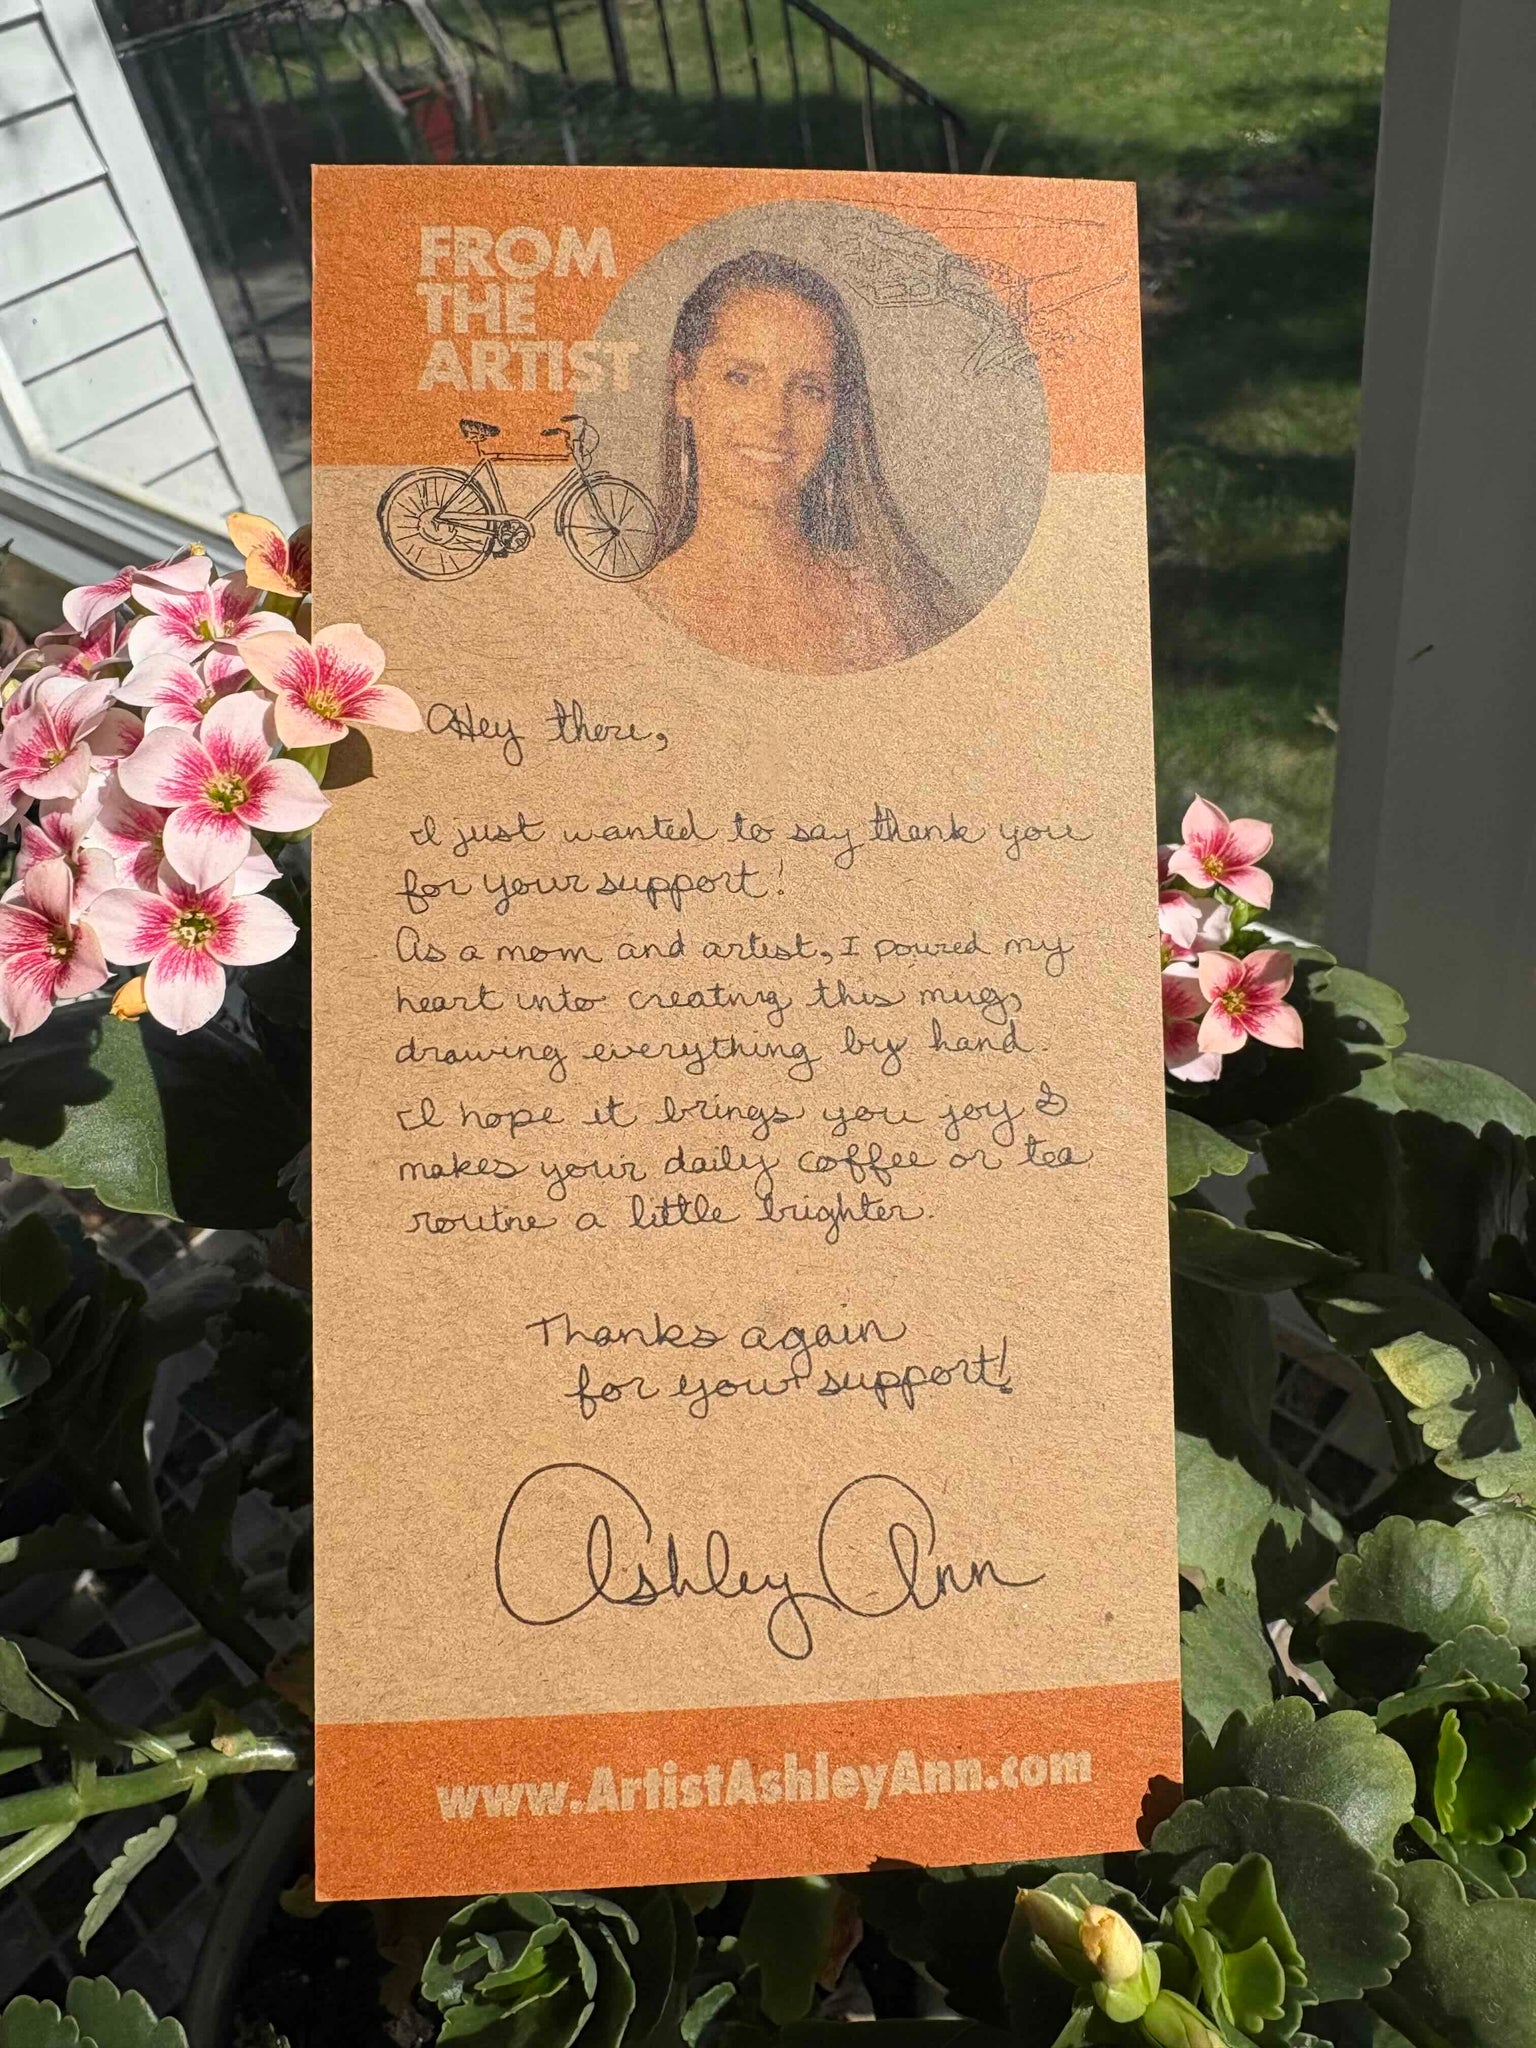 FROM
THE
ARTIST
Hey there,
I just wanted to say thank you
for your support!
As a mom and artist, I poured my
heart into creating this mug,
drawing everything by hand.
I hope it brings you joy &
makes your daily coffee or tea
routine a little brighter.
Thanks again
for your support!
Ashley Ann
www.ArtistAshleyAnn.com